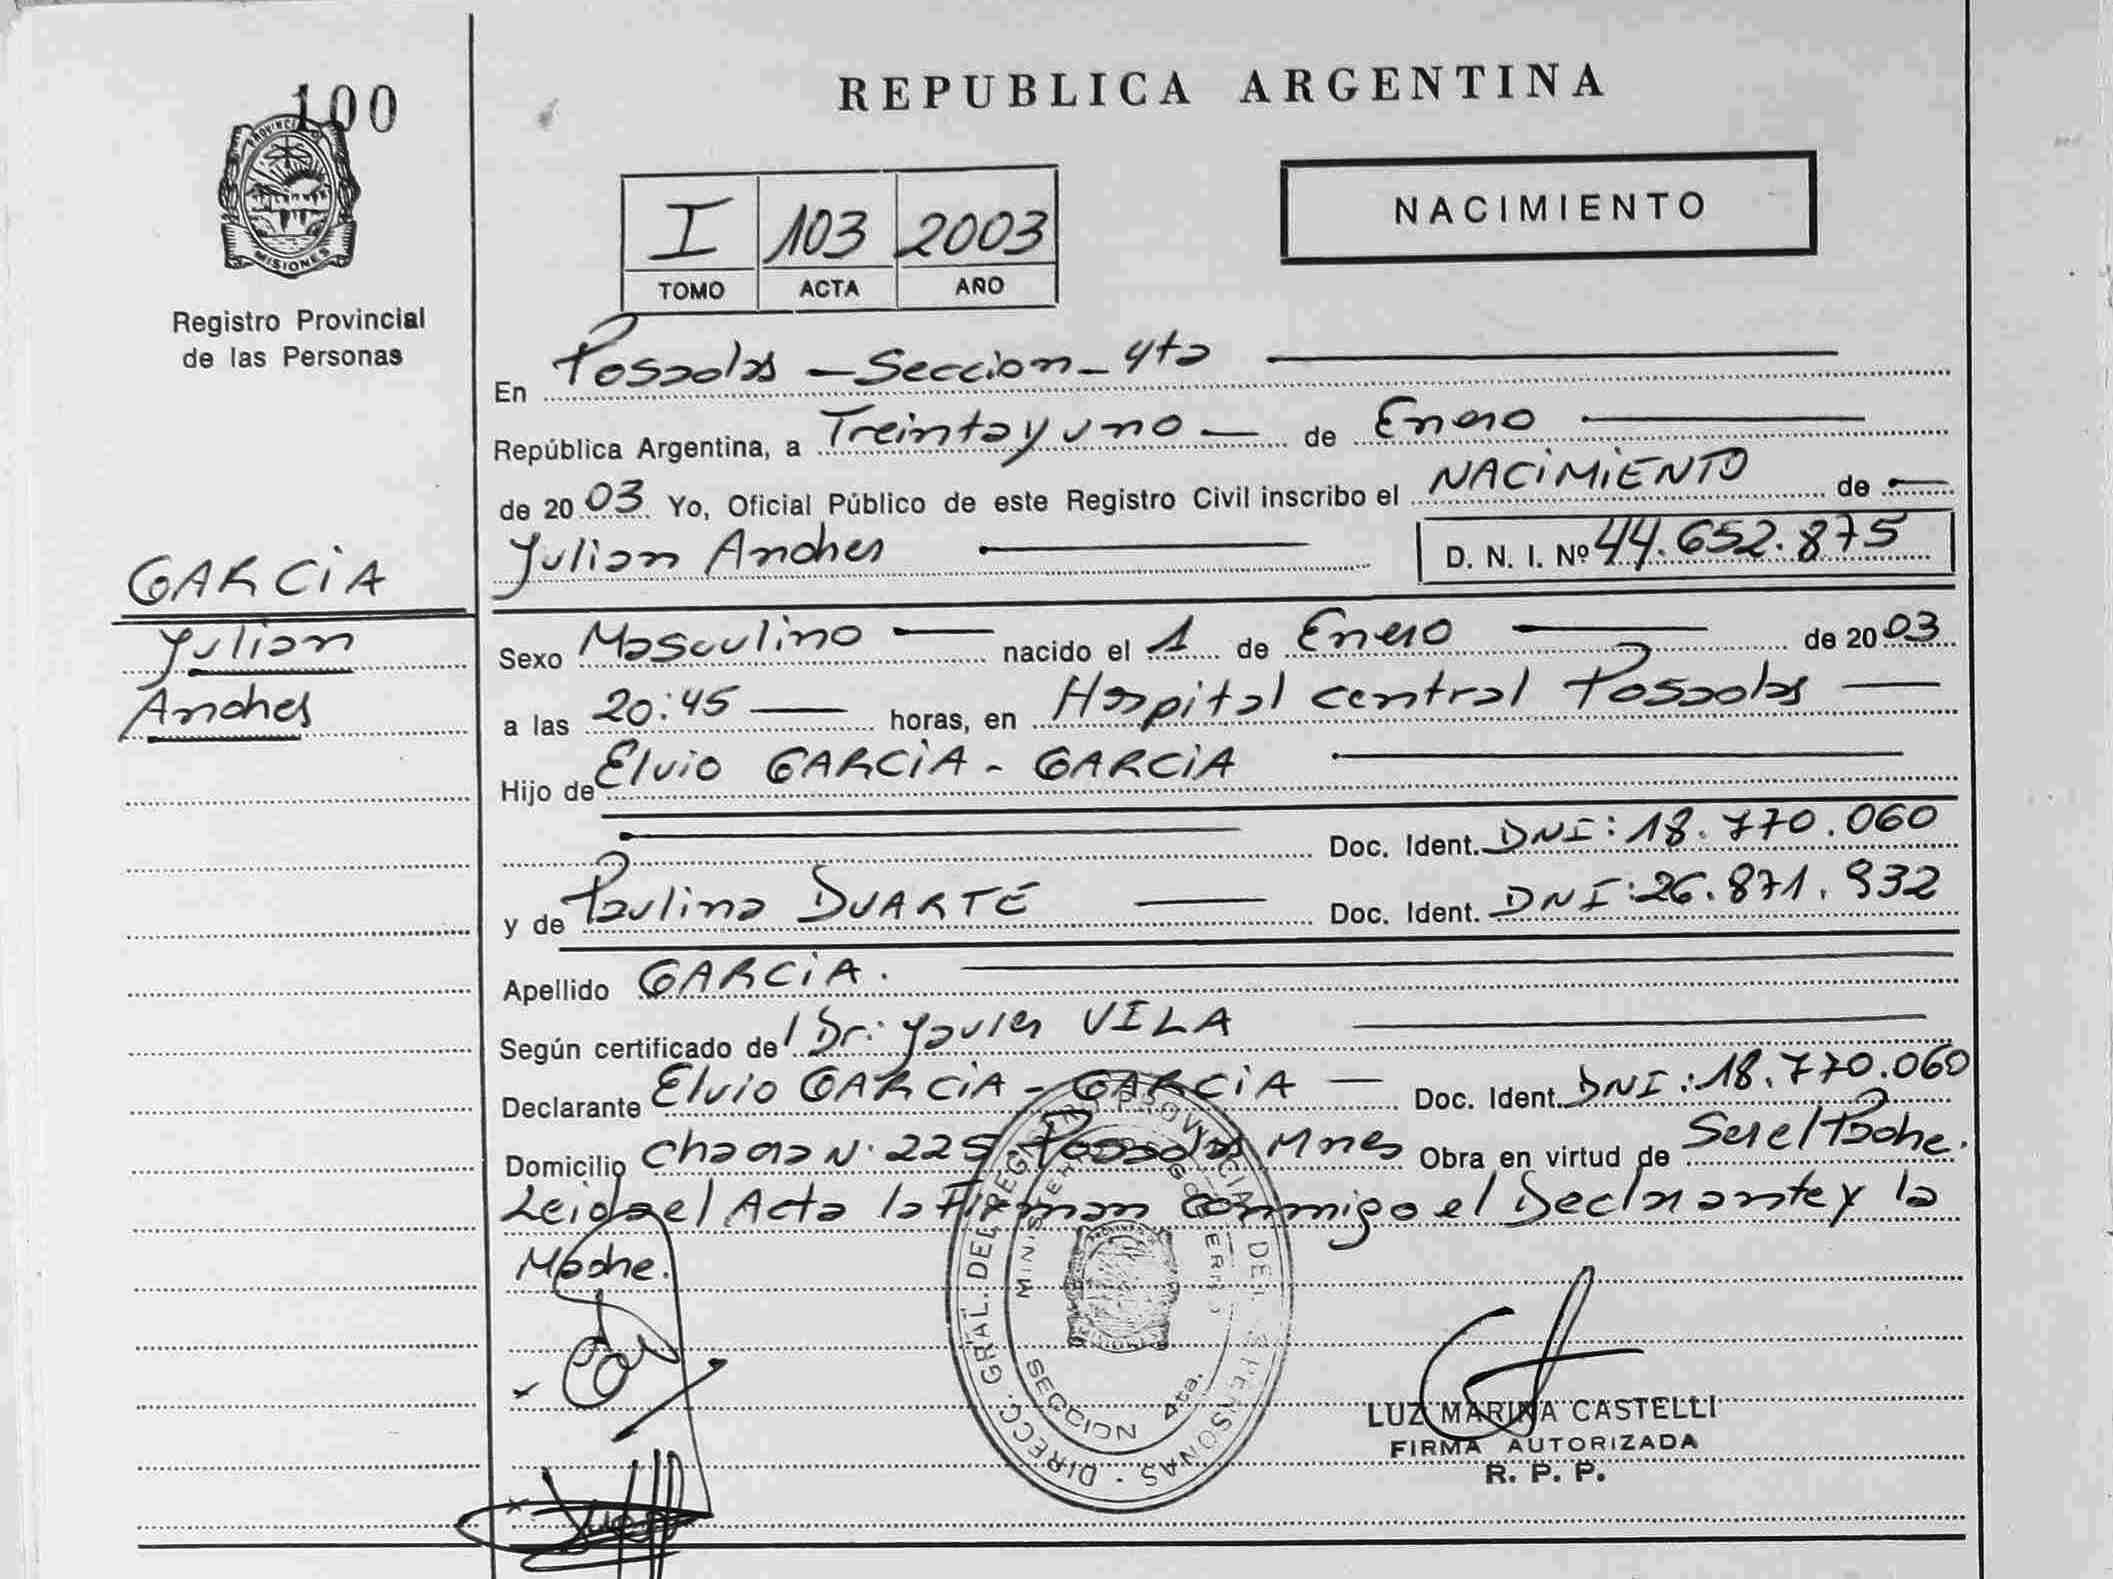 100
PROVINCIA DE
MISIONES
Registro Provincial
de las Personas
REPUBLICA ARGENTINA
I 103 2003
TOMO ACTA AÑO
NACIMIENTO
En Posadas - Seccion - 4ta
República Argentina, a Treinta y uno de Enero
de 2003 Yo, Oficial Público de este Registro Civil inscribo el NACIMIENTO de
Julian Andres D. N. I. Nº 44.652.875
GARCIA
Julian
Andres
Sexo Masculino nacido el 1 de Enero de 2003
a las 20:45 horas, en Hospital central Posadas
Hijo de Elvio GARCIA - GARCIA
Doc. Ident. DNI: 18.770.060
y de Paulina DUARTE Doc. Ident. DNI: 26.871.932
Apellido GARCIA.
Según certificado de Dr: Javier VILA
Declarante Elvio GARCIA - GARCIA Doc. Ident. DNI: 18.770.060
Domicilio N. 225 Posadas Mnes Obra en virtud de Ser el Padre.
Leida el Acta la Firman conmigo el Declarante y la
Madre.
DIRECC. GRAL. DEL REGISTRO PROVINCIAL DE LAS PERSONAS
MINISTERIO DE GOBIERNO
SECCION 4ta.
LUZ MARINA CASTELLI
FIRMA AUTORIZADA
R. P. P.